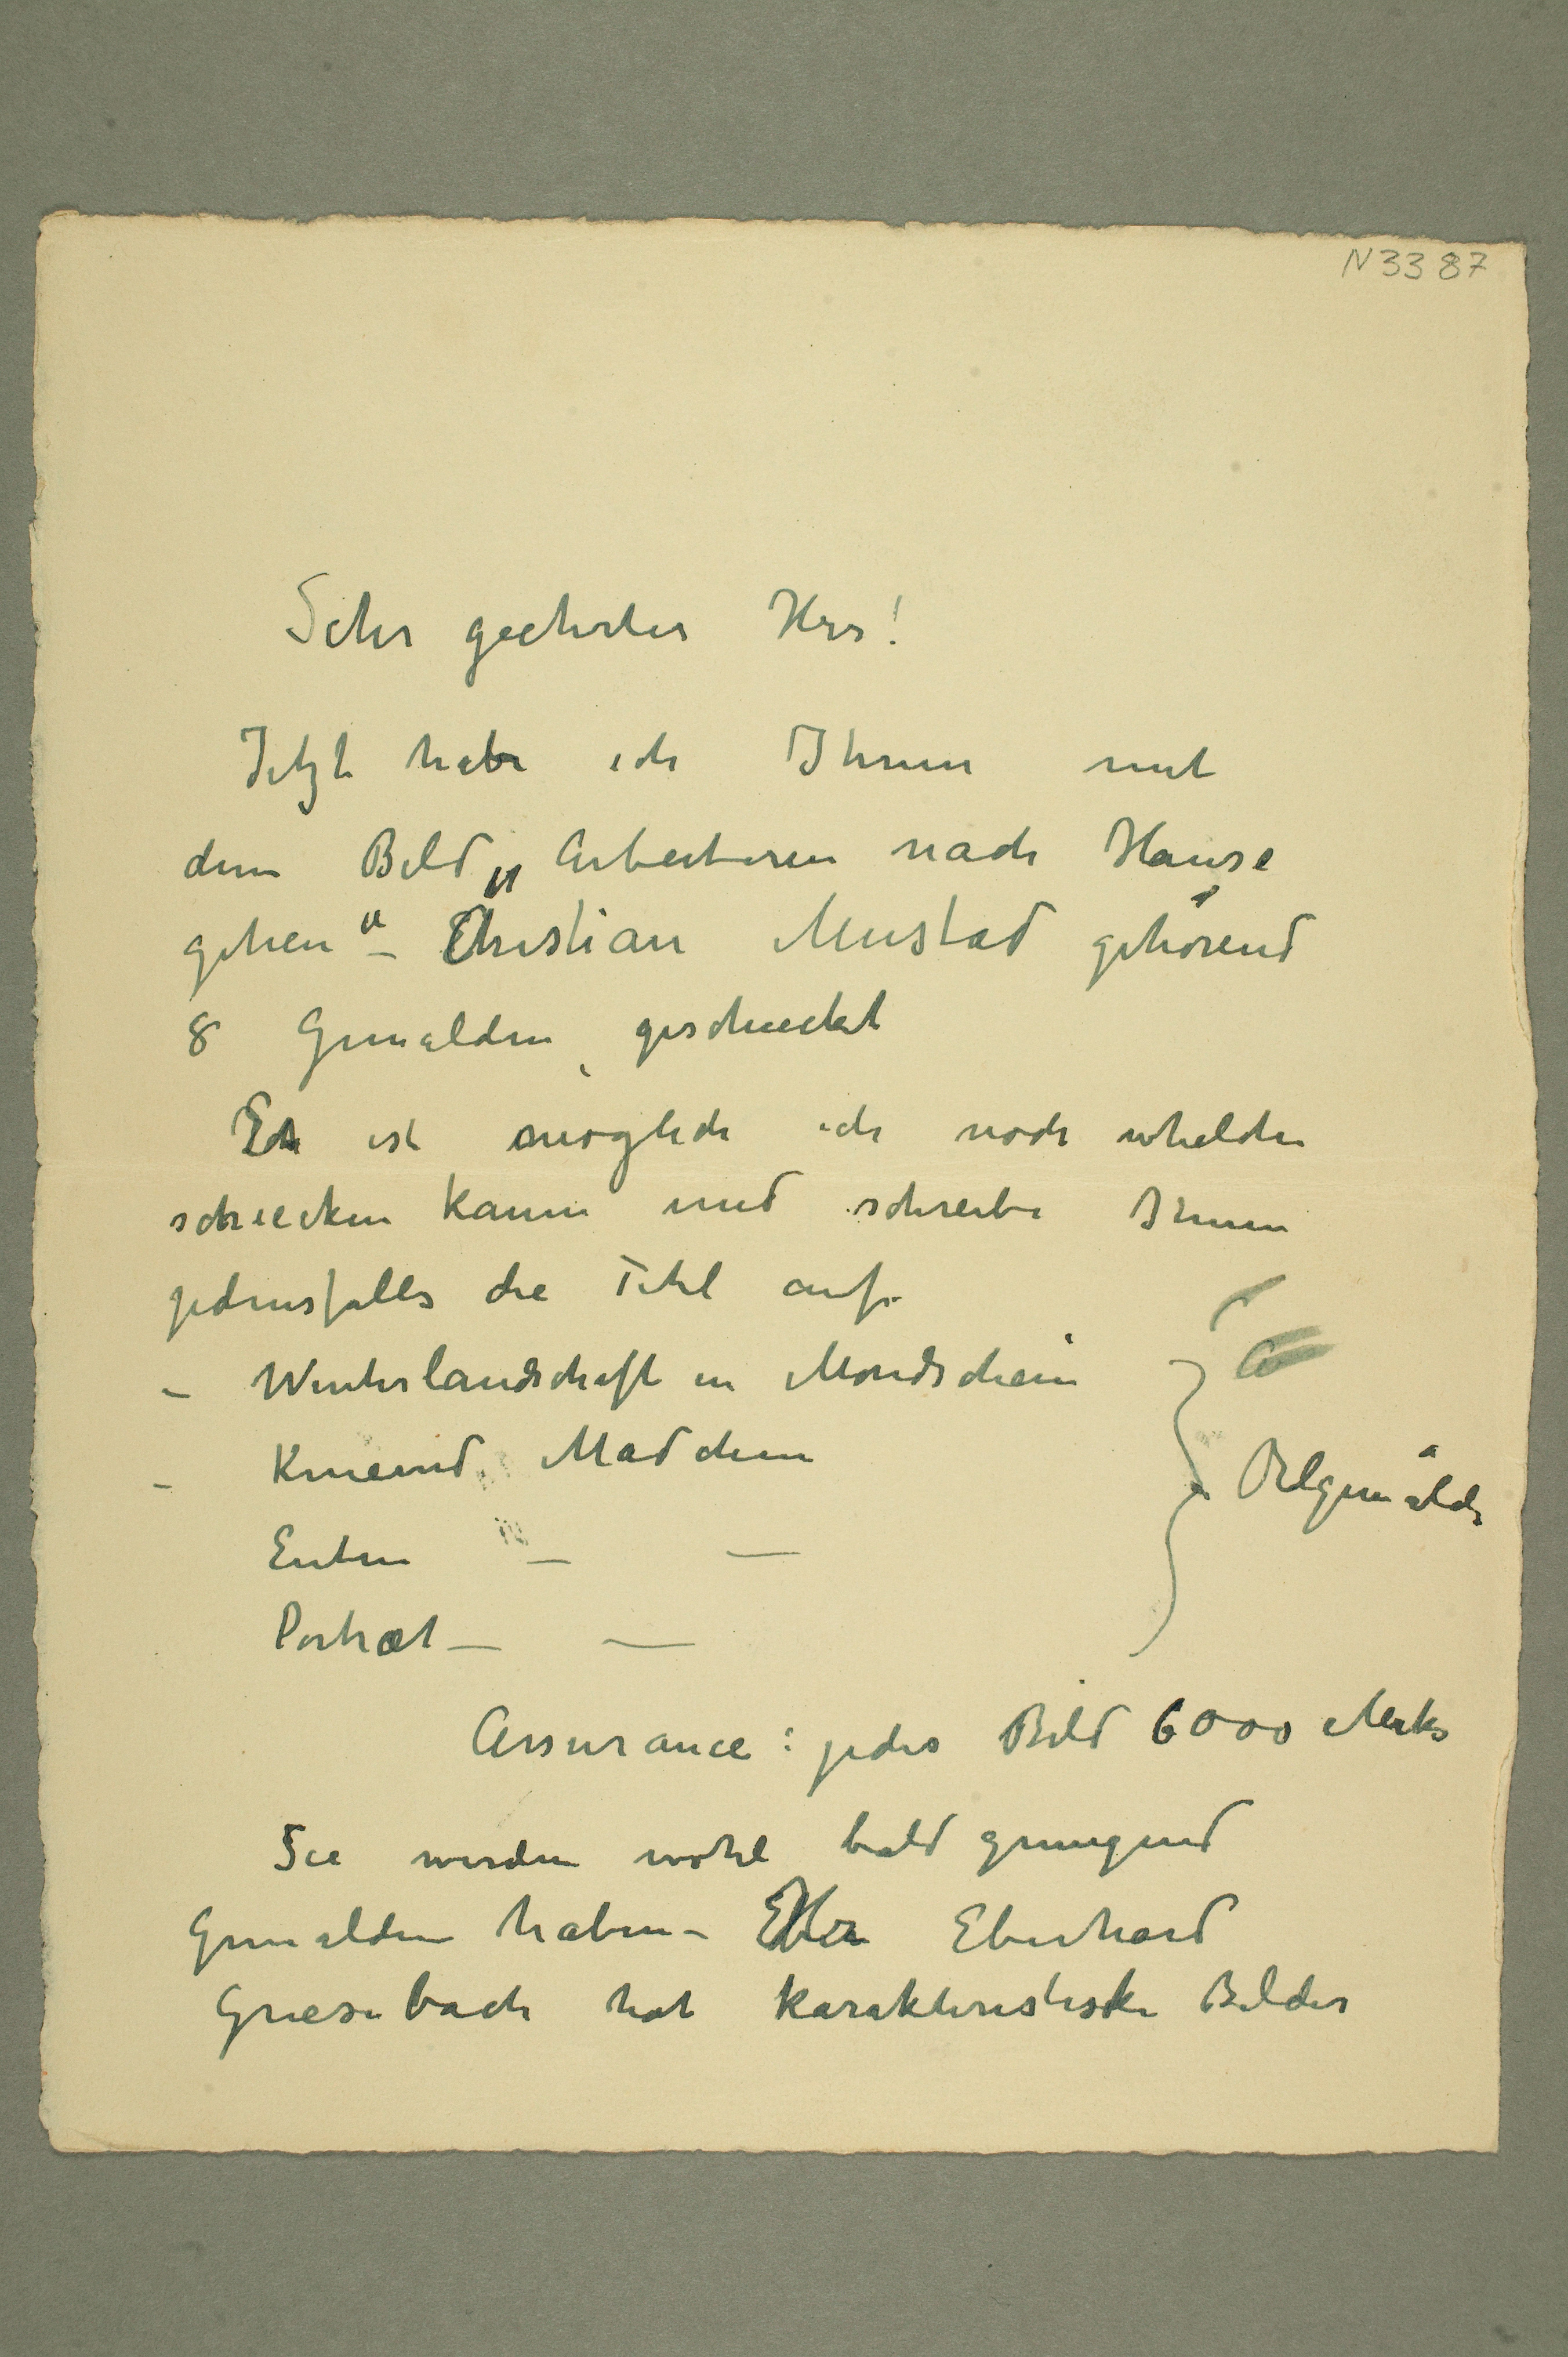 N 3387
Sehr geehrter Herr!
Jetzt habe ich Ihnen mit
dem Bild „Arbeiteren nach Hause
gehen“ – Christian Mustad gehörend
8 Gemälden geschieckt
Es ist möglich ich noch whelche
schiecken kann und schreibe Ihnen
jedensfalls die Titel auf.
– Winterlandschaft in Mondschein
– Knieend Madchen
Enten – —
Portræt – —
Oelgemälde
Assurance: jedes Bild 6000 Marks
Sie werden wohl bald genugend
Gemalden haben – Herr Eberhard
Griesebach hat karakteristiske Bilder